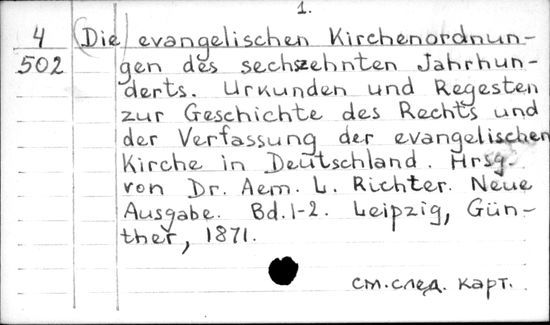 1.
4 (Die) evangelischen Kirchenordnun-
502 gen des sechszehnten Jahrhun-
derts. Urkunden und Regesten
zur Geschichte des Rechts und
der Verfassung der evangelischen
Kirche in Deutschland. Hrsg.
von Dr. Aem. L. Richter. Neue
Ausgabe. Bd.1-2. Leipzig, Gün-
ther, 1871.
см.след. карт.